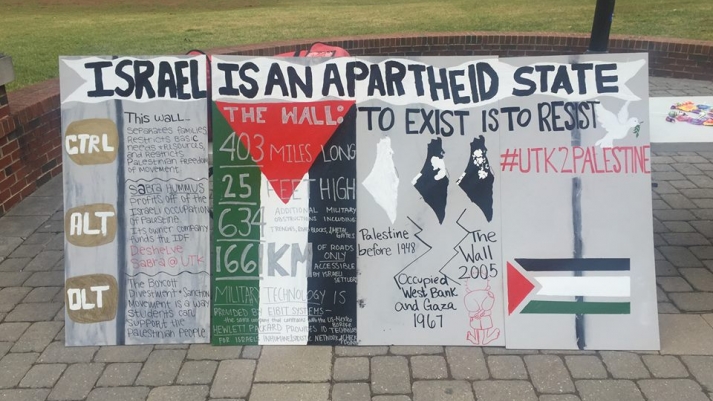 ISRAEL IS AN APARTHEID STATE
CTRL
ALT
DLT
This wall...
Separates families
Restricts basic
needs & resources,
and Restricts
Palestinian Freedom
of movement.
Sabra HUMMUS
profits off of the
Israeli occupation
of Palestine.
Its owner company
funds the IDF
Deshelve
Sabra @ UTK
The Boycott
Divestment
Movement is a way
students can
support the
Palestinian People
THE WALL:
403 MILES LONG
25 FEET HIGH
634 ADDITIONAL MILITARY
OBSTRUCTIONS INCLUDING
GATES
166 KM OF ROADS
ONLY
ACCESSIBLE
BY ISRAELI
SETTLERS
MILITARY TECHNOLOGY IS
PROVIDED BY ELBIT SYSTEMS
HEWLETT PACKARD PROVIDES ID
TO EXIST IS TO RESIST
Palestine
before 1948
Occupied
West Bank
and Gaza
1967
The
Wall
2005
#UTK2PALESTINE